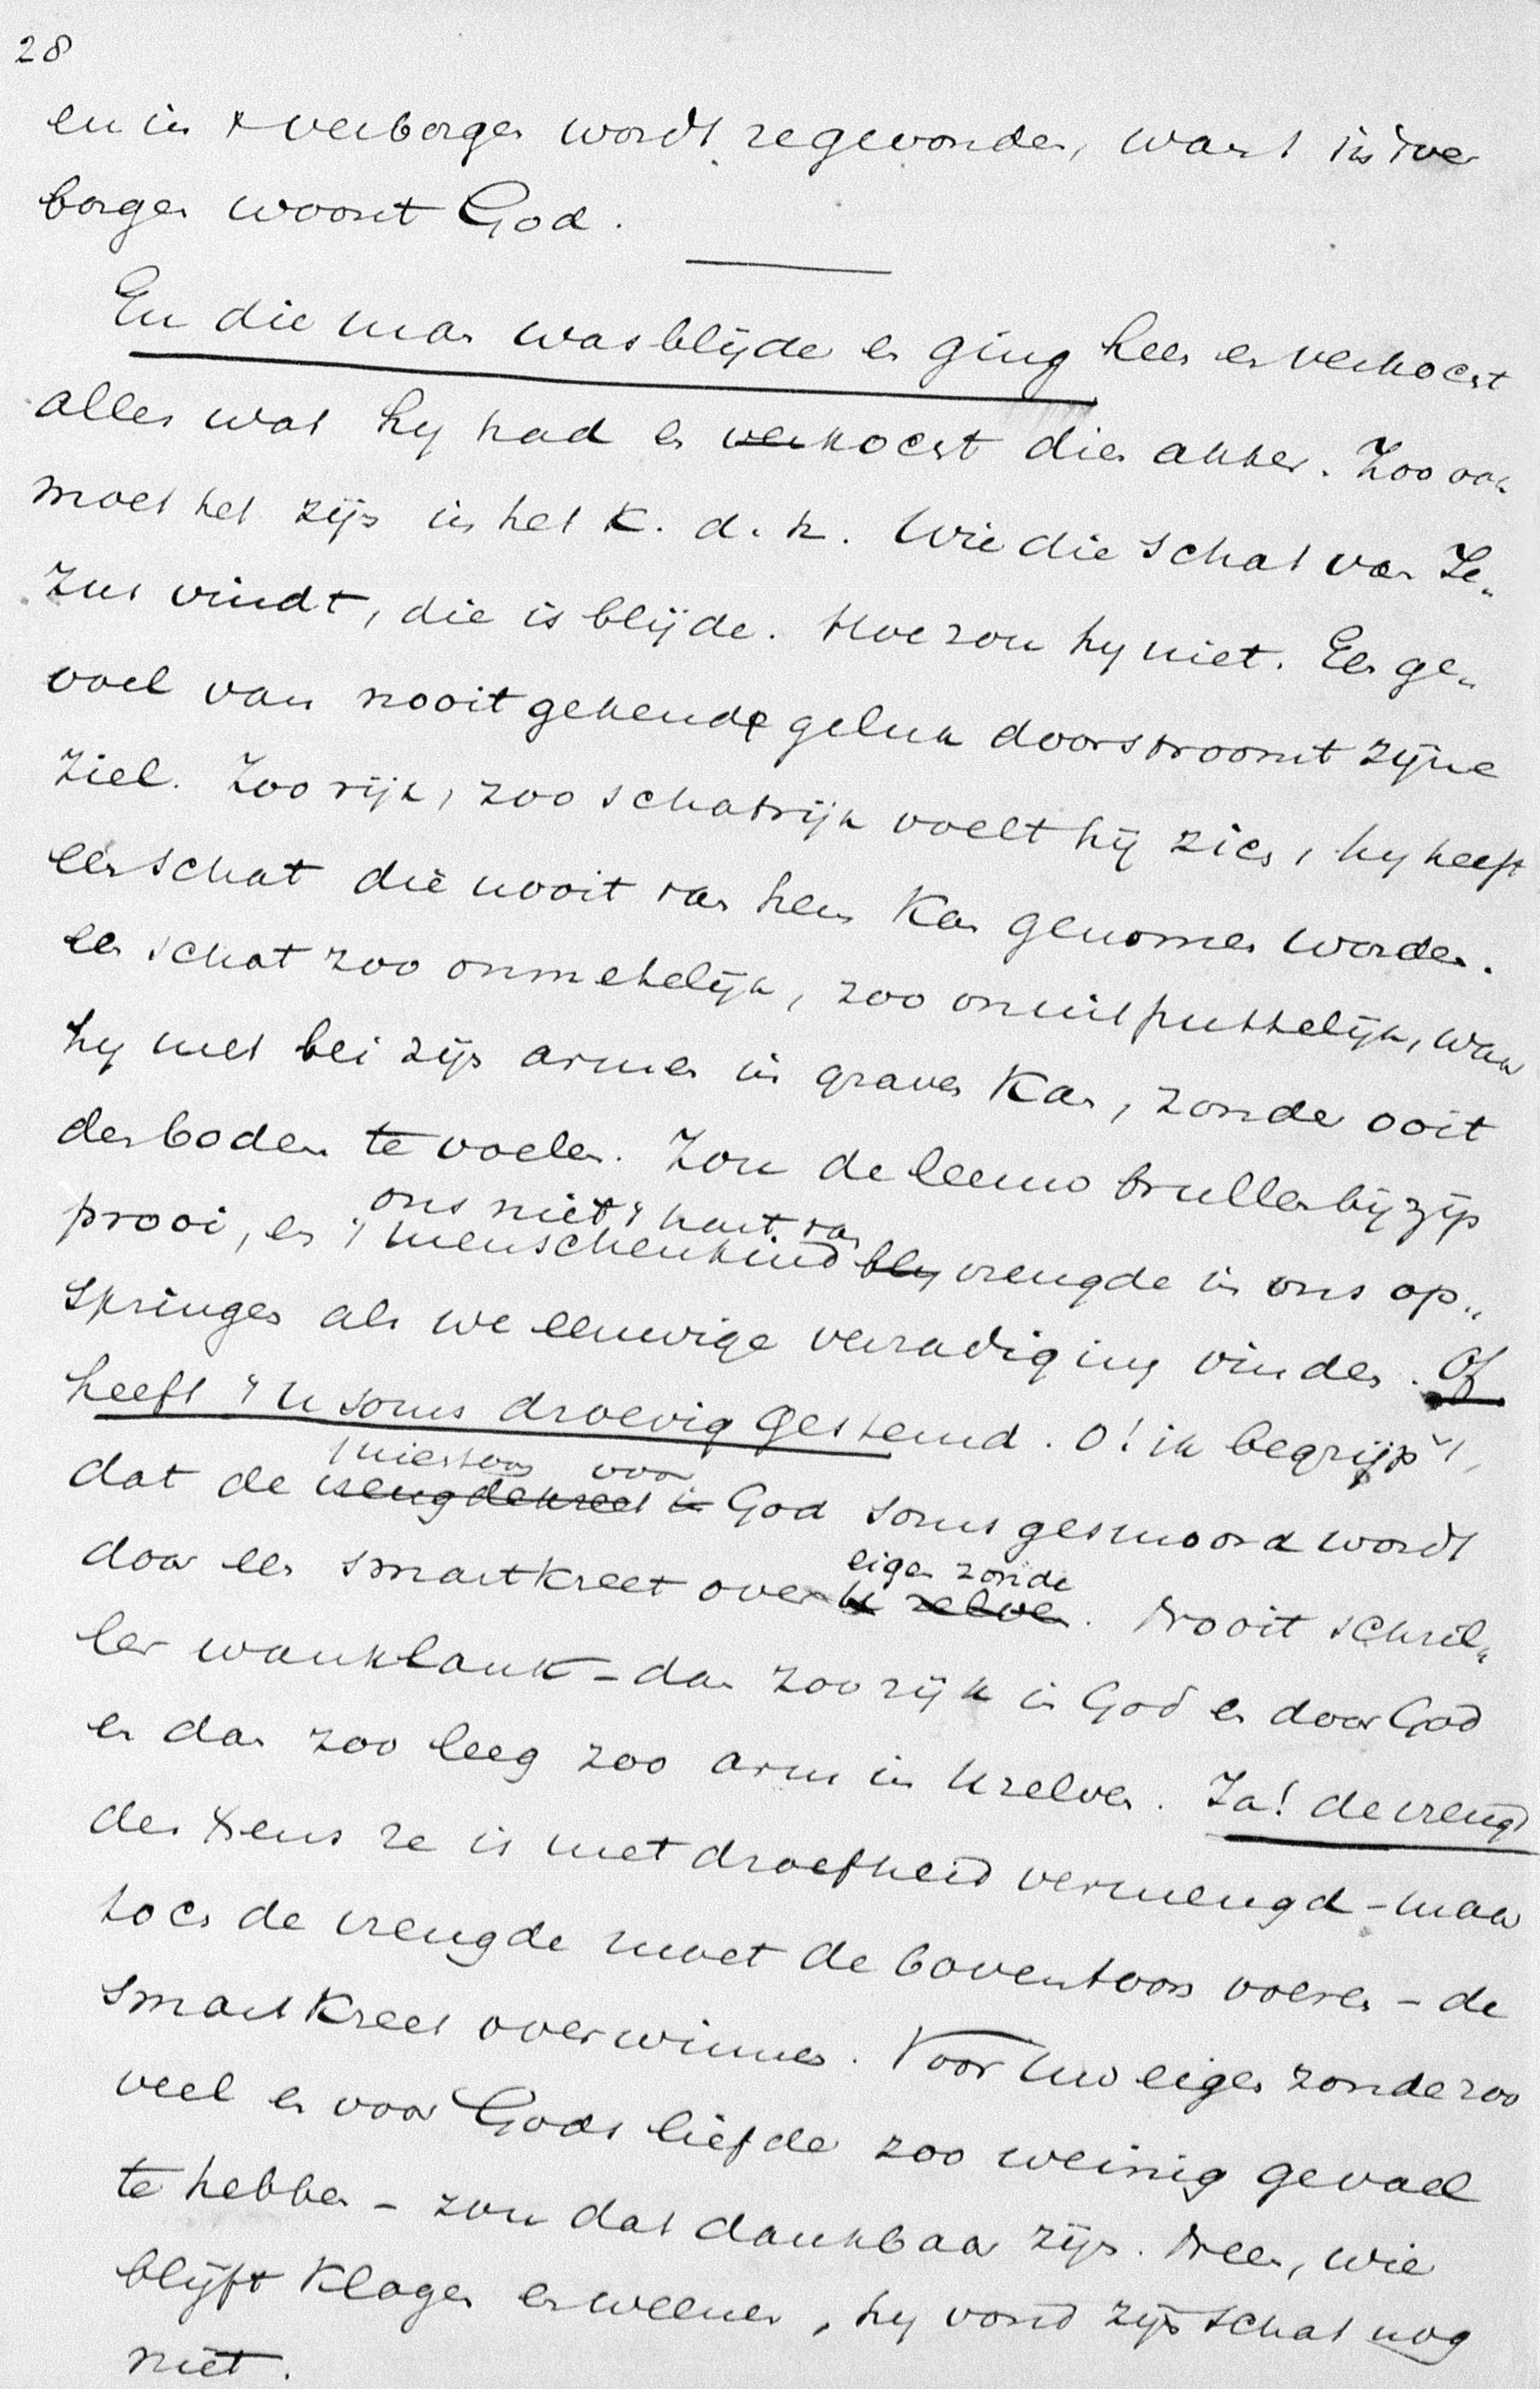 28
en in 't verborgen wordt ze gevonden, want in 't ver
borgen woont God.
En die man was blijde en ging heen en verkocht
alles wat hij had en verkocht dien akker. Zoo ook
moet het zijn in het K. d. h. Wie die schat van Je„
zus vindt, die is blijde. Hoe zou hij niet. Een ge„
voel van nooit gekende geluk doorstroomt zijne
ziel. Zoo rijk, zoo schatrijk voelt hij zich, hij heeft
een schat die nooit van hem kan genomen worden.
een schat zoo onmetelijk, zoo onuitputtelijk, waar
hij met bei zijn armen in graven kan, zonder ooit
den bodem te voelen. Zou de leeuw brullen bij zijn
ons niet 't hart van
prooi, en 't menschenkind blij vreugde in ons op„
springen als we eeuwige verzadiging vinden. Of
heeft 't u soms droevig gestemd. O! ik begrijp 't,
juichtoon voor
dat de vreugdekreet in God soms gesmoord wordt
eigen zonde
door een smartkreet over u zelven. Nooit schril„
ler wanklank – dan zoo rijk in God en door God
en dan zoo leeg zoo arm in u zelven. Ja! de vreugd
des Hens ze is met droefheid vermengd – maar
toch de vreugde moet de boventoon voeren – de
smartkreet overwinnen. Voor uw eigen zonde zoo
veel en voor Gods liefde zoo weinig gevoel
te hebben – zou dat dankbaar zijn. Neen, wie
blijft klagen en weenen, hij vond zijn schat nog
niet.